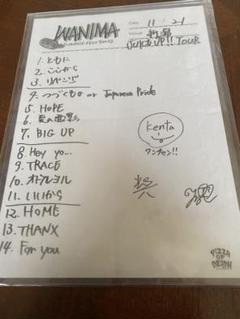 WANIMA
Date 11 / 21
JUICE UP!! TOUR
1. ともに
2. ここから
3. リベンジ
4. つづくもの or Japanese Pride
5. HOPE
6. 夏の面影
7. BIG UP
8. Hey yo...
9. TRACE
10. オドルヨル
11. いいから
12. HOME
13. THANX
14. For you
Kenta
ワンチャン!!
PIZZA OF DEATH